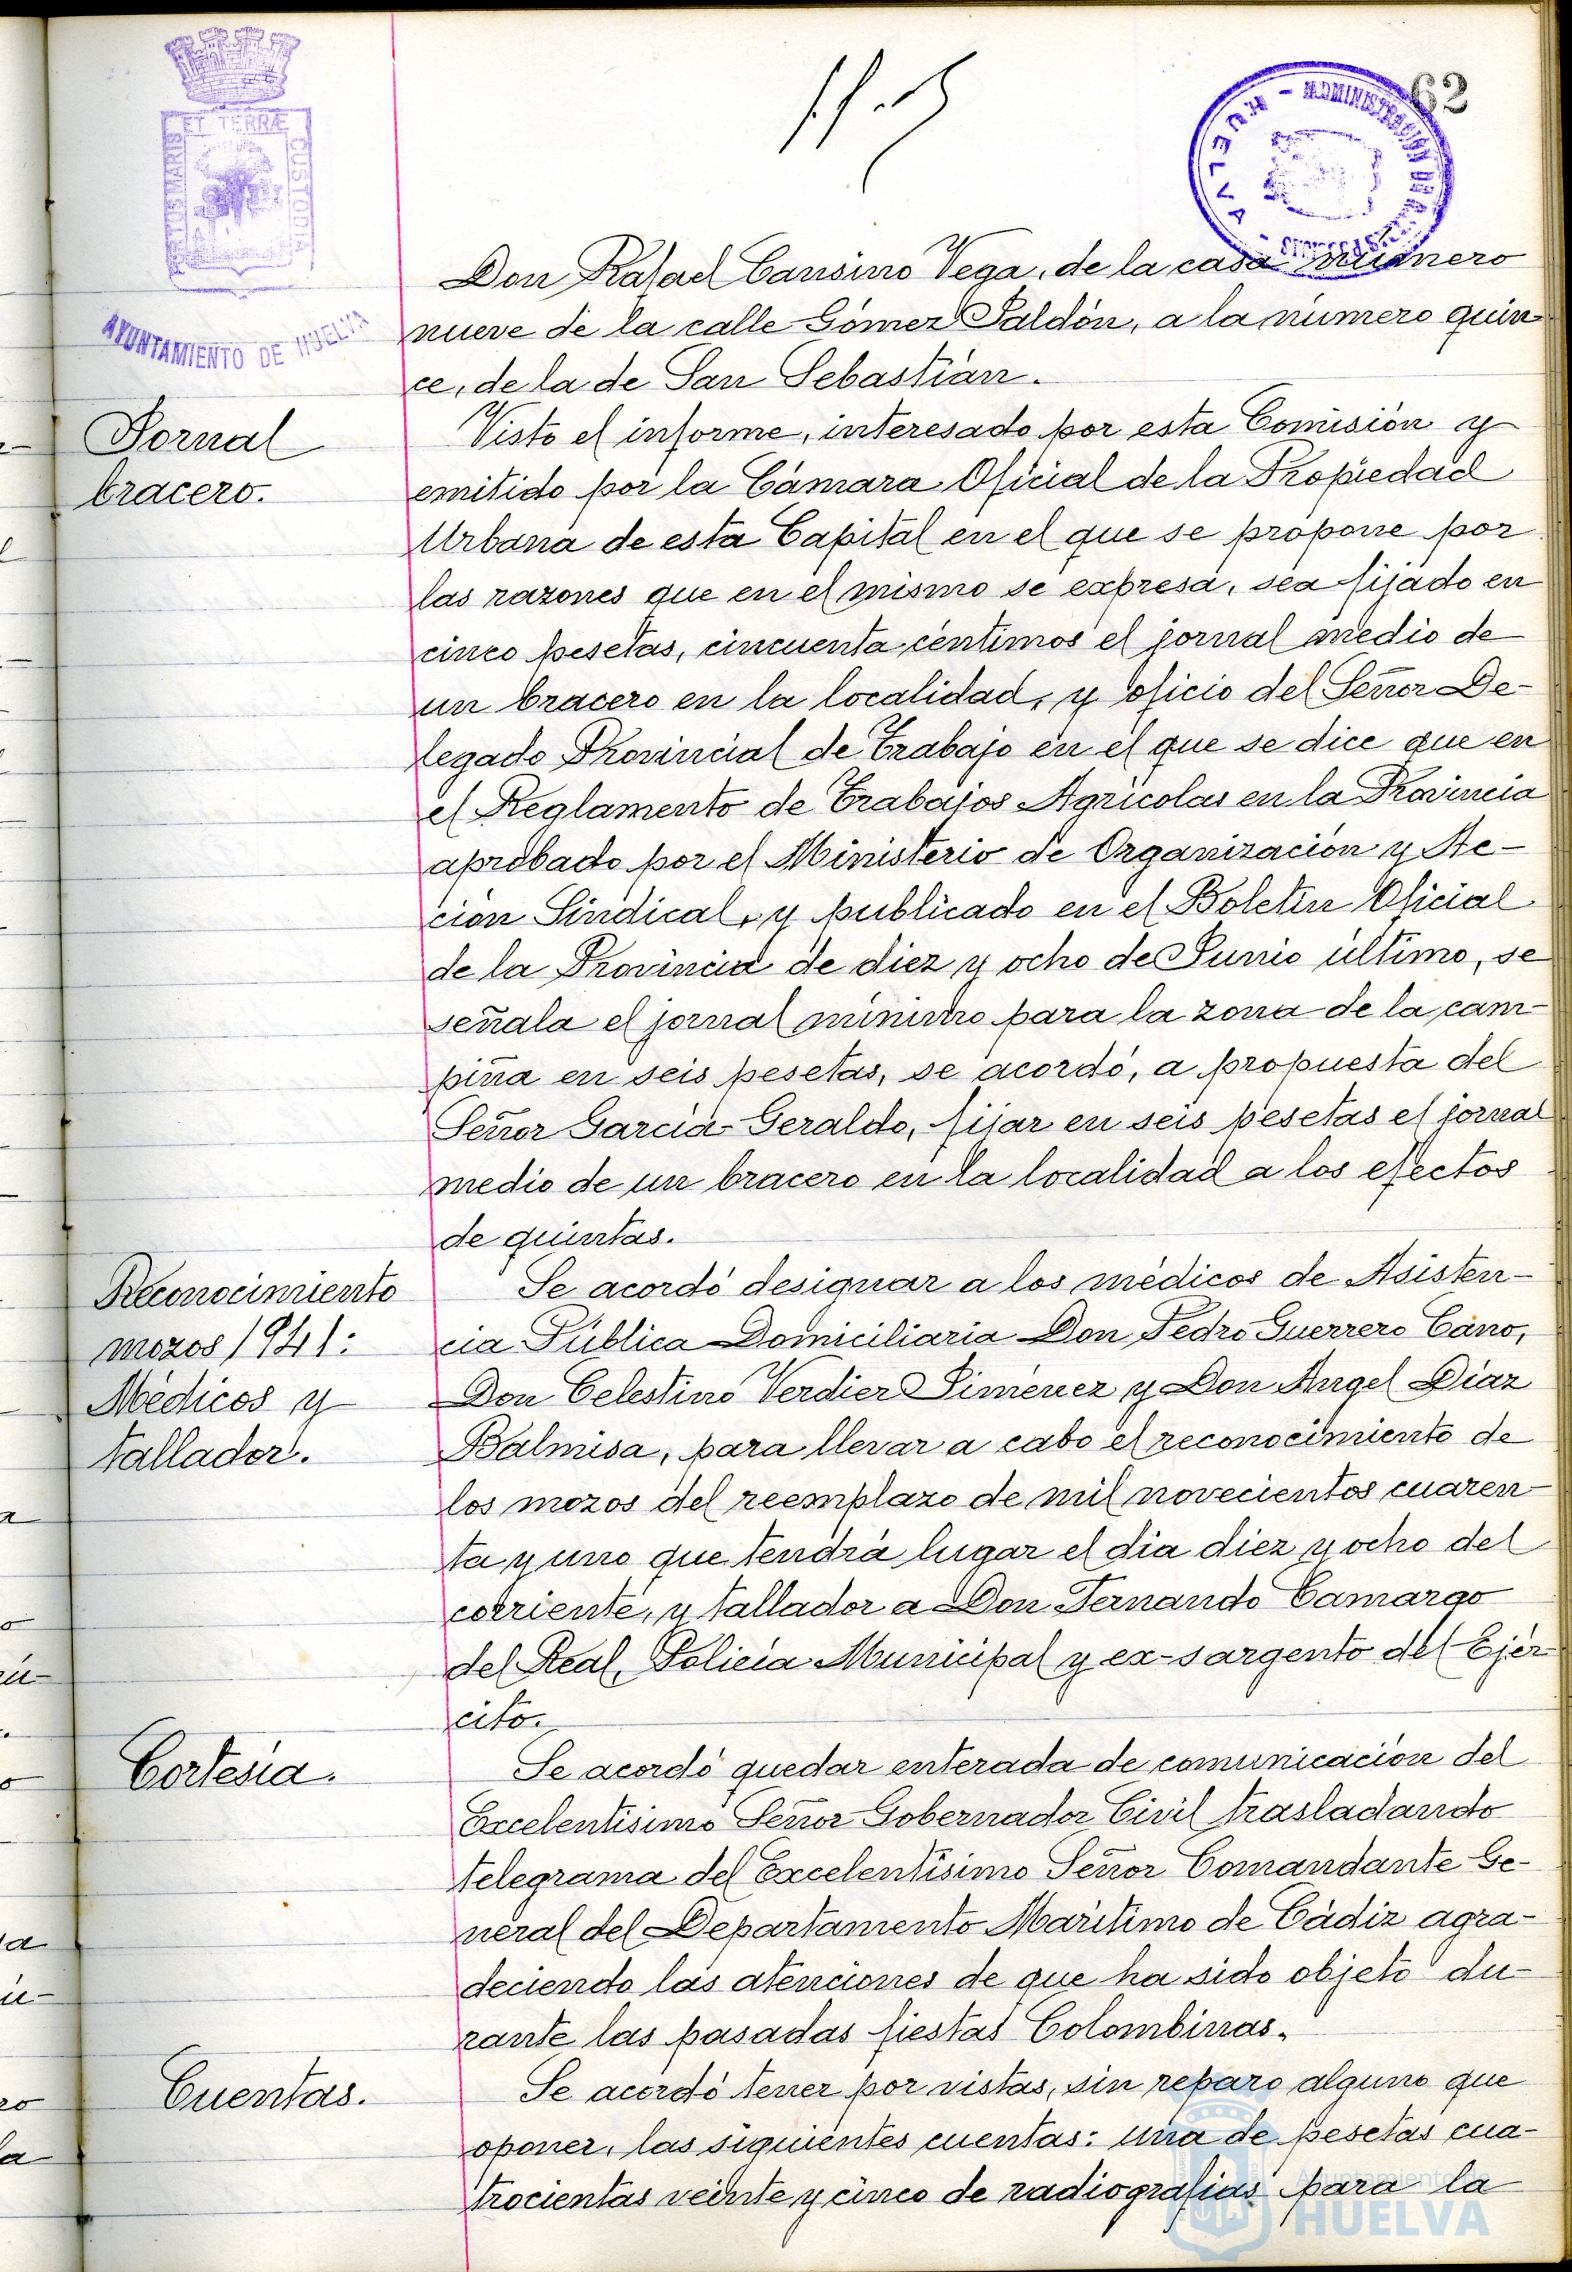 62
PORTUS MARIS ET TERRÆ CUSTODIA
AYUNTAMIENTO DE HUELVA
HUELVA - ADMINISTRACIÓN DE
Don Rafael Cansino Vega, de la casa número
nueve de la calle Gómez Jaldón, a la número quin
ce, de la de San Sebastián.
Jornal
bracero.
Visto el informe, interesado por esta Comisión y
emitido por la Cámara Oficial de la Propiedad
Urbana de esta Capital en el que se propone por
las razones que en el mismo se expresa, sea fijado en
cinco pesetas, cincuenta céntimos el jornal medio de
un bracero en la localidad, y oficio del Señor De-
legado Provincial de Trabajo en el que se dice que en
el Reglamento de Trabajos Agrícolas en la Provincia
aprobado por el Ministerio de Organización y Ac-
ción Sindical, y publicado en el Boletín Oficial
de la Provincia de diez y ocho de Junio último, se
señala el jornal mínimo para la zona de la cam-
piña en seis pesetas, se acordó, a propuesta del
Señor García-Geraldo, fijar en seis pesetas el jornal
medio de un bracero en la localidad a los efectos
de quintas.
Reconocimiento
mozos 1941:
Médicos y
tallador.
Se acordó designar a los médicos de Asisten-
cia Pública Domiciliaria Don Pedro Guerrero Cano,
Don Celestino Verdier Jiménez y Don Angel Díaz
Balmisa, para llevar a cabo el reconocimiento de
los mozos del reemplazo de mil novecientos cuaren-
ta y uno que tendrá lugar el día diez y ocho del
corriente, y tallador a Don Fernando Camargo
del Real, Policía Municipal y ex-sargento del Ejér
cito.
Cortesía.
Se acordó quedar enterada de comunicación del
Excelentísimo Señor Gobernador Civil trasladando
telegrama del Excelentísimo Señor Comandante Ge-
neral del Departamento Marítimo de Cádiz agra-
deciendo las atenciones de que ha sido objeto du-
rante las pasadas fiestas Colombinas.
Cuentas.
Se acordó tener por vistas, sin reparo alguno que
oponer, las siguientes cuentas: una de pesetas cua-
trocientas veinte y cinco de radiografías para la
Ayuntamiento de
HUELVA